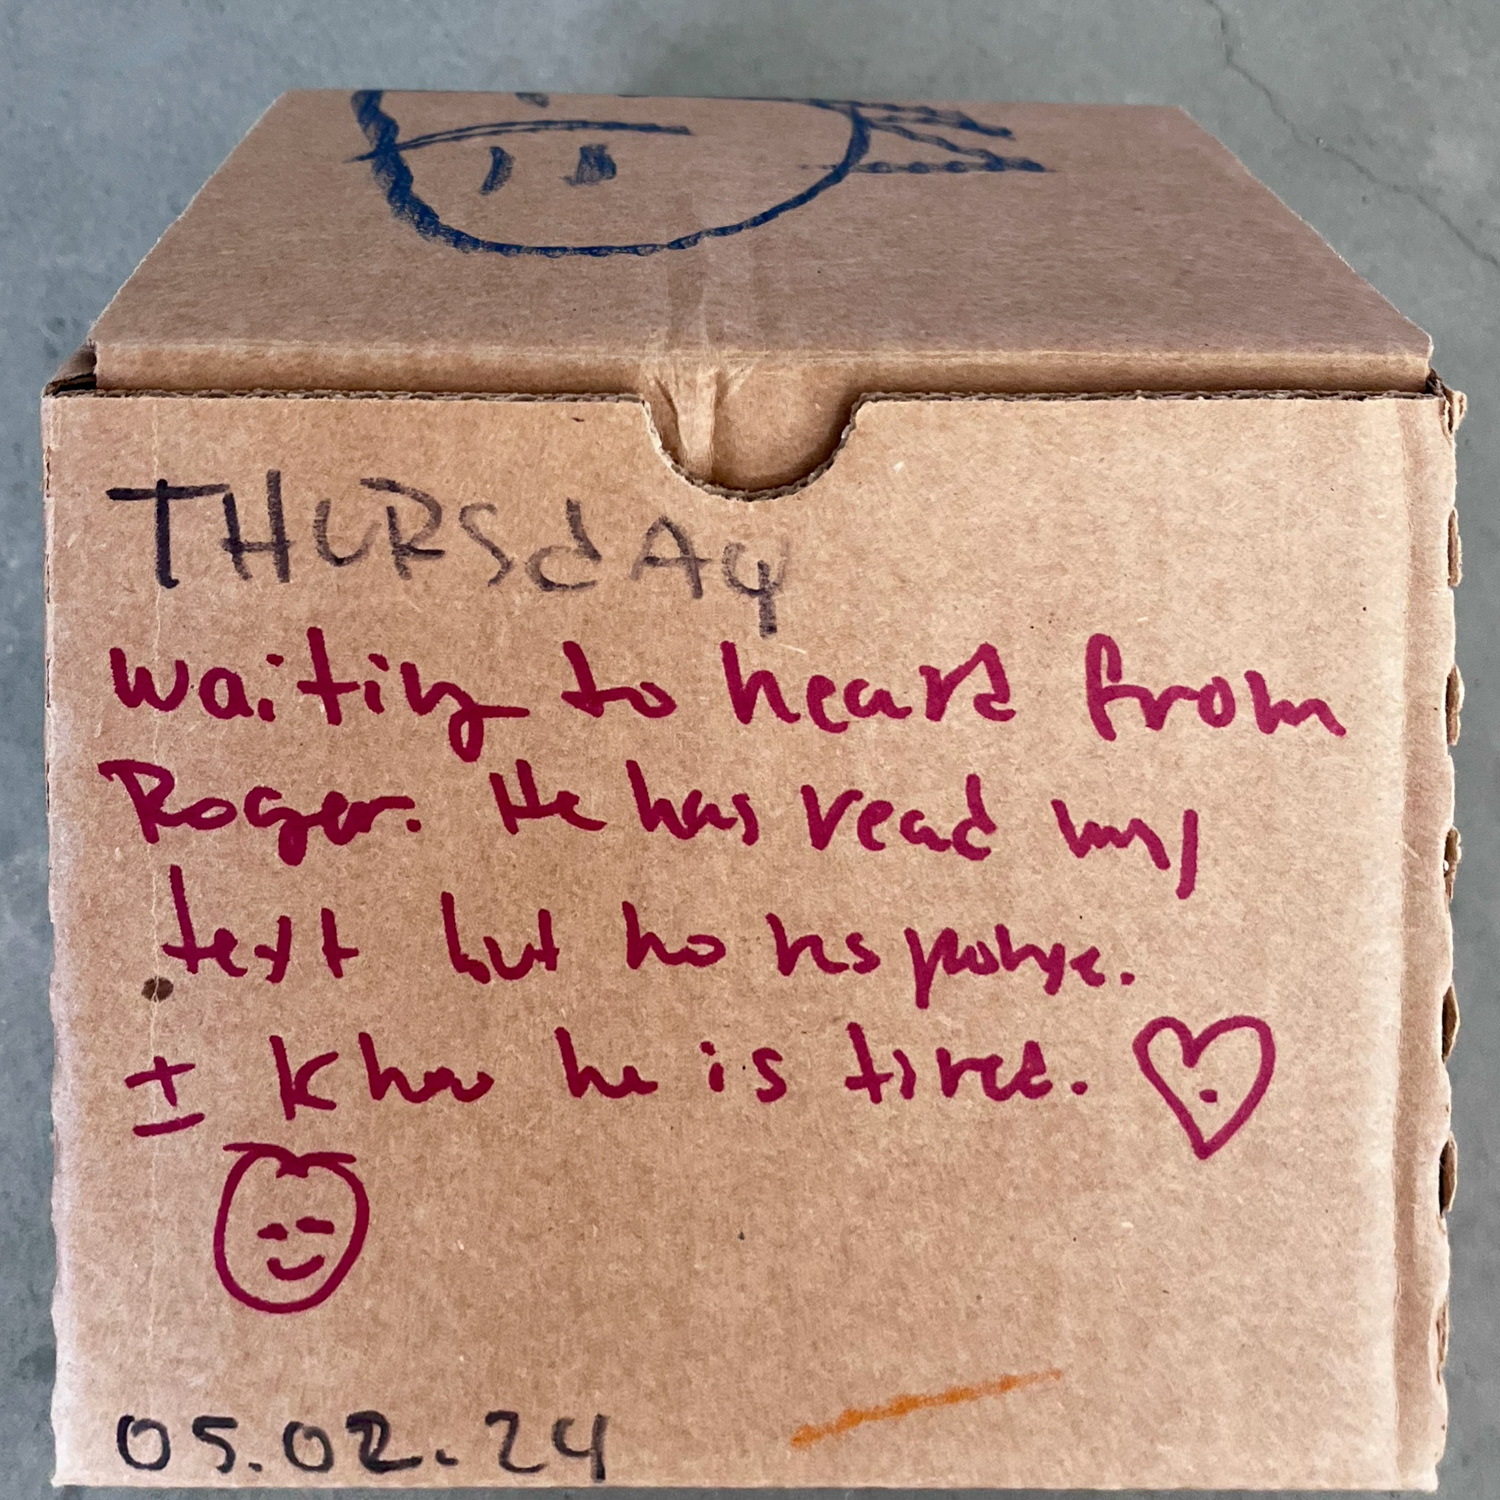 THURSdAY
waiting to heard from
Roger. He has read my
text but no response.
I know he is tired.
05.02.24